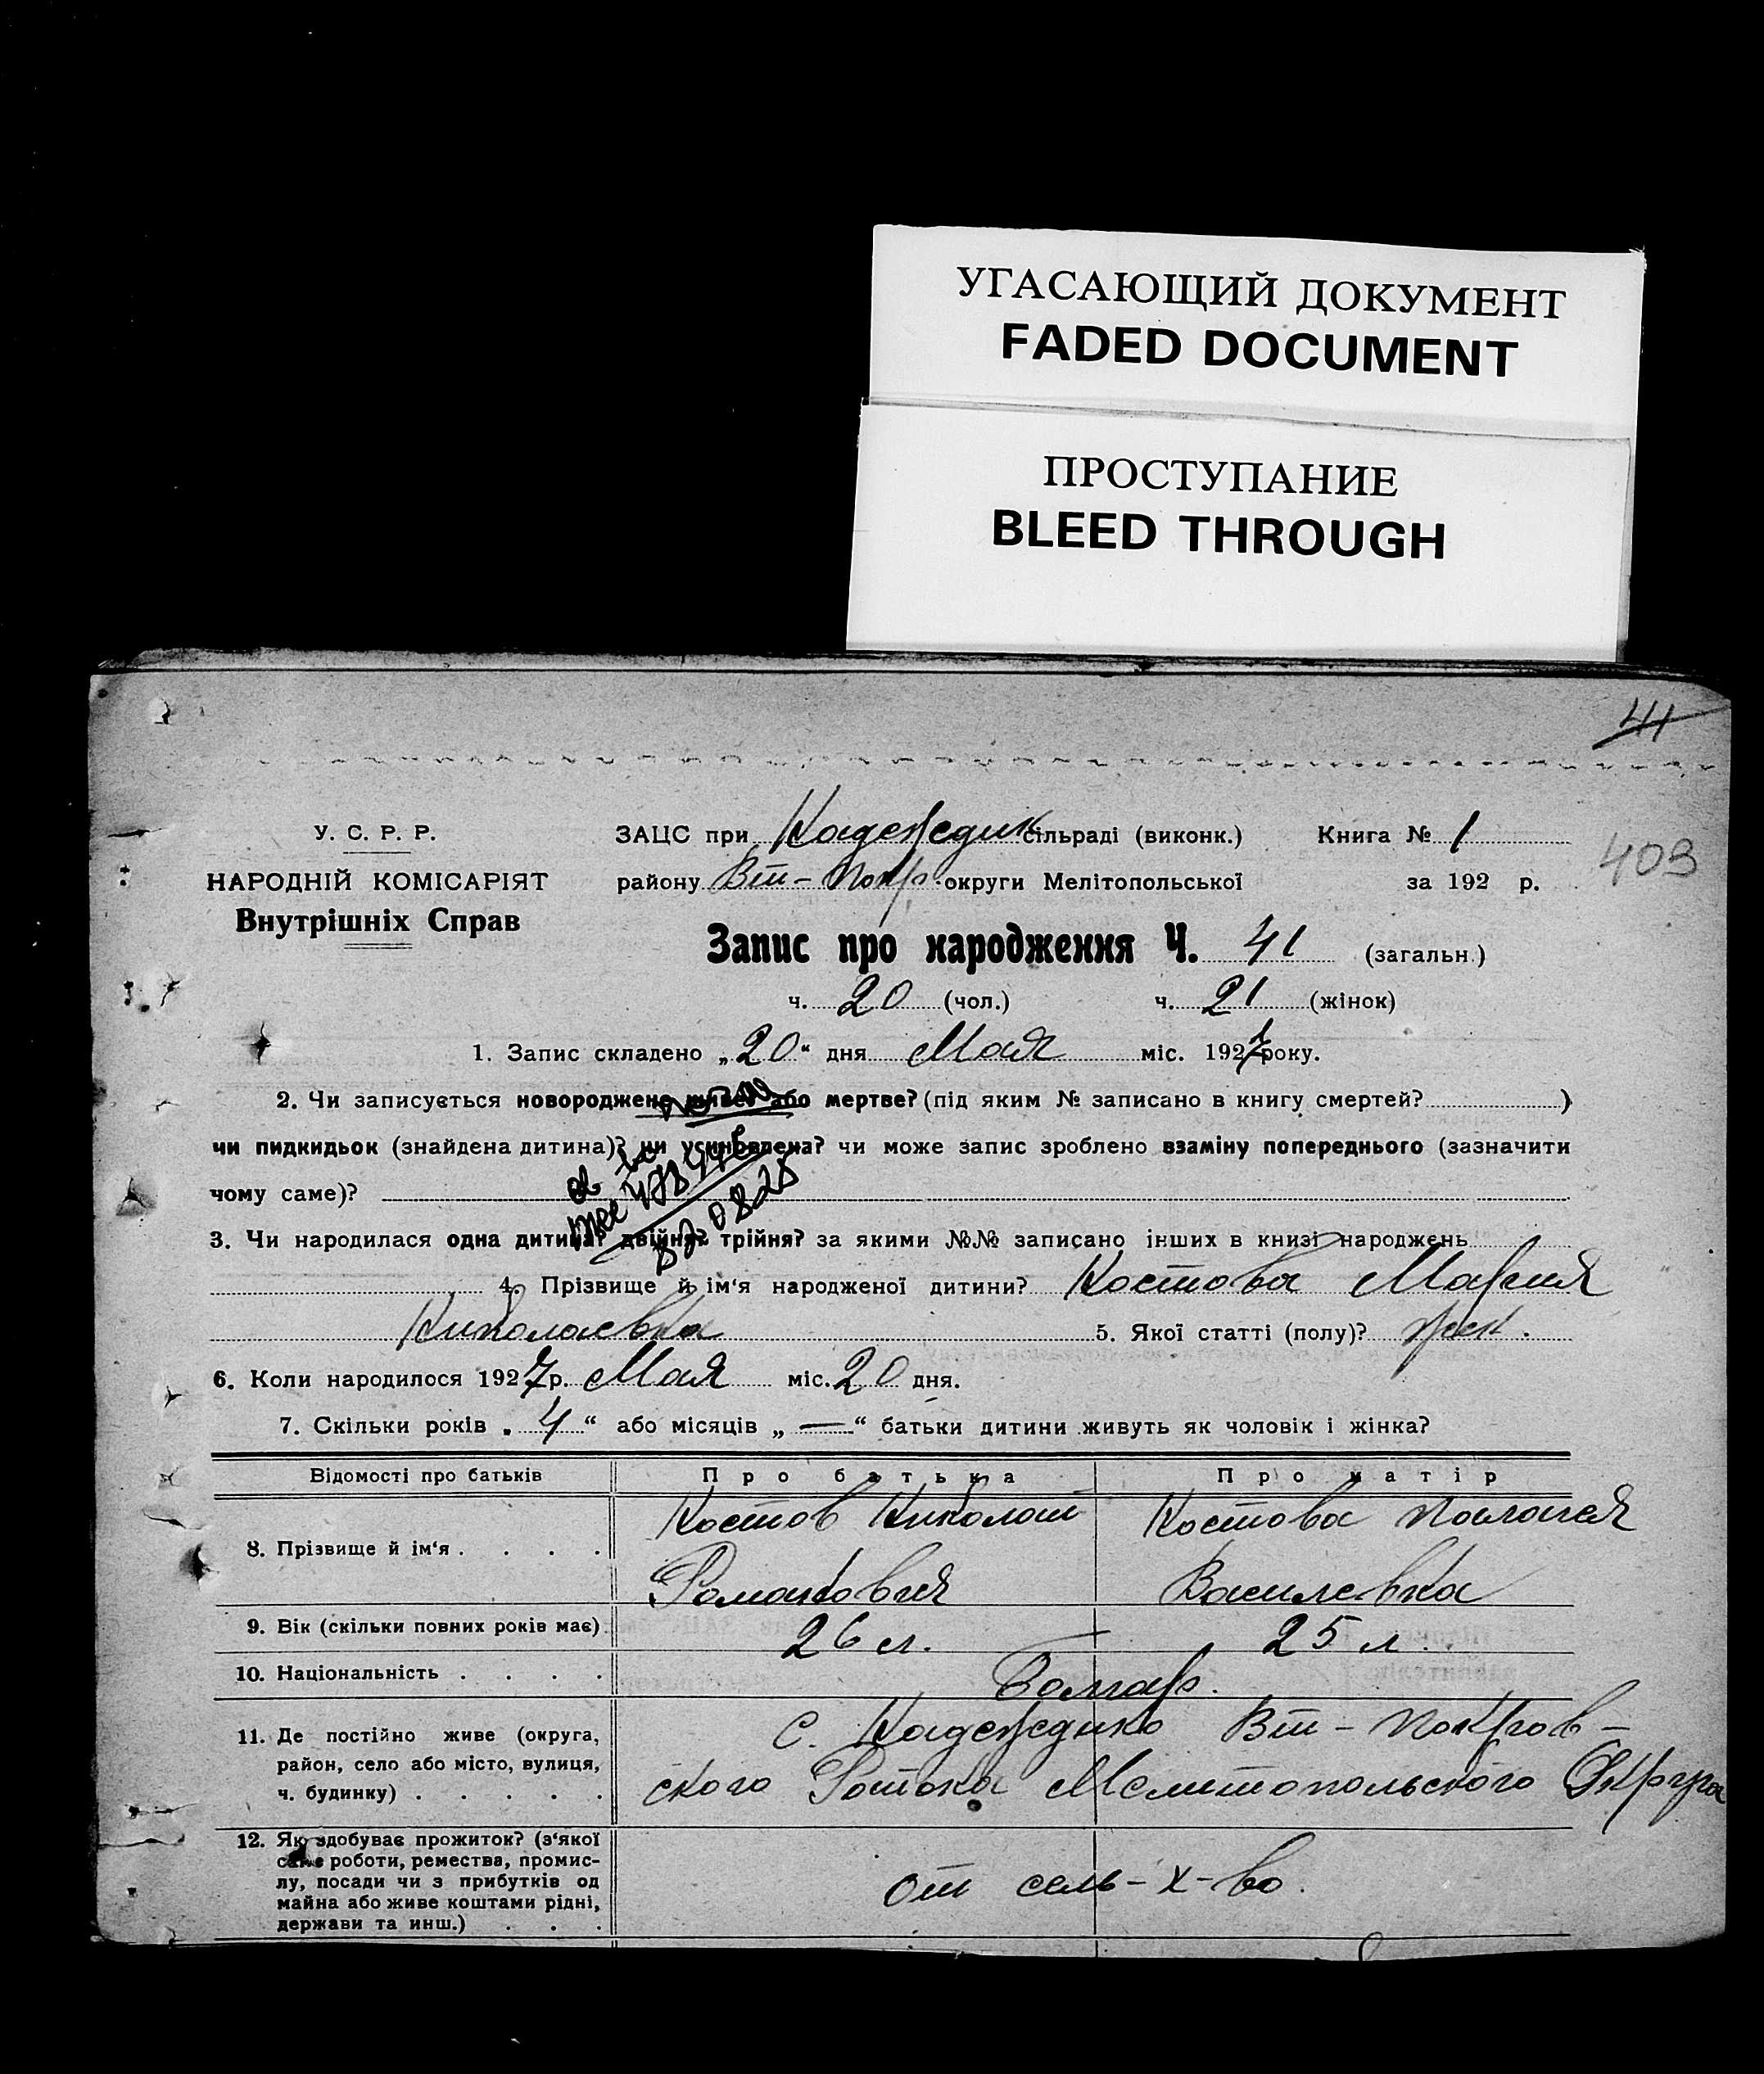 УГАСАЮЩИЙ ДОКУМЕНТ
FADED DOCUMENT
ПРОСТУПАНИЕ
BLEED THROUGH
41
У. С. Р. Р.
НАРОДНІЙ КОМІСАРІЯТ
Внутрішніх Справ
ЗАЦС при Надеждин сільраді (виконк.) Книга № 1
409
району Вт-Покр. округи Мелітопольської за 192 р.
Запис про народження Ч. 41 (загальн.)
ч. 20 (чол.) ч. 21 (жінок)
1. Запис складено „20“ дня Мая міс. 1927 року.
2. Чи записується новороджене живе? або мертве? (під яким № записано в книгу смертей? )
чи пидкидьок (знайдена дитина)? чи усиновлена? чи може запис зроблено взаміну попереднього (зазначити
чому саме)?
3. Чи народилася одна дитина? двійня? трійня? за якими №№ записано інших в книзі народжень
4. Прізвище й ім‘я народженої дитини? Костова Мария
Николаевна 5. Якої статті (полу)? жен.
6. Коли народилося 1927 р. Мая міс. 20 дня.
7. Скільки років „4“ або місяців „—“ батьки дитини живуть як чоловік і жінка?
Відомості про батьків Про батька Про матір
8. Прізвище й ім‘я . . . . Костов Николай Костова Палагея
Романович Василевна
9. Вік (скільки повних років має) 26 л. 25 л.
10. Національність . . . . Болгар.
11. Де постійно живе (округа,
район, село або місто, вулиця,
ч. будинку) . . . . .
С. Надеждино Вт-Покров-
ского Района Мелитопольского Округа
12. Як здобуває прожиток? (з‘якої
саме роботи, ремества, промис-
лу, посади чи з прибутків од
майна або живе коштами рідні,
держави та инш.) . . .
от сель-х-во.